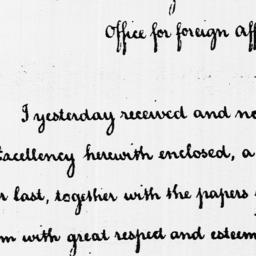 Office for foreign aff
I yesterday received and
xcellency herewith enclosed, a
r last, together with the papers
m with great respect and esteem